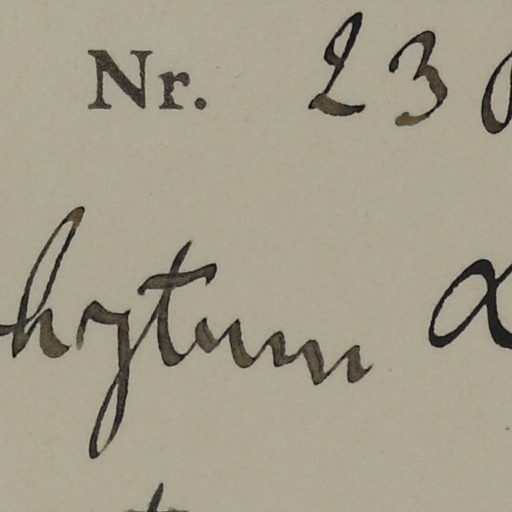 Nr. 23
hytum